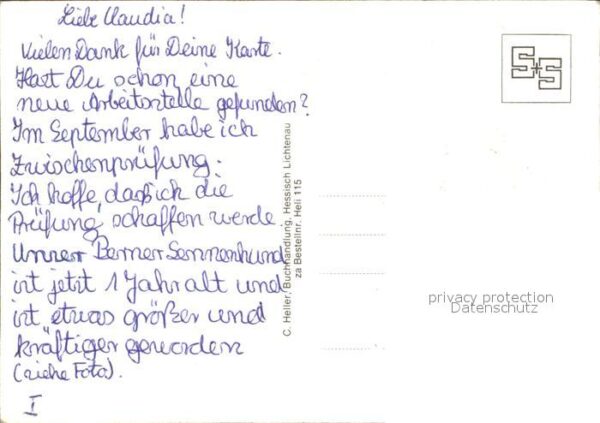 Liebe Claudia!
Vielen Dank für Deine Karte.
Hast Du schon eine
neue Arbeitsstelle gefunden?
Im September habe ich
Zwischenprüfung.
Ich hoffe, daß ich die
Prüfung schaffen werde.
Unser Berner Sennenhund
ist jetzt 1 Jahr alt und
ist etwas größer und
kräftiger geworden
(siehe Foto).
I
C. Heller, Buchhandlung, Hessisch Lichtenau
za Bestellnr. Heli 115
S+S
privacy protection
Datenschutz